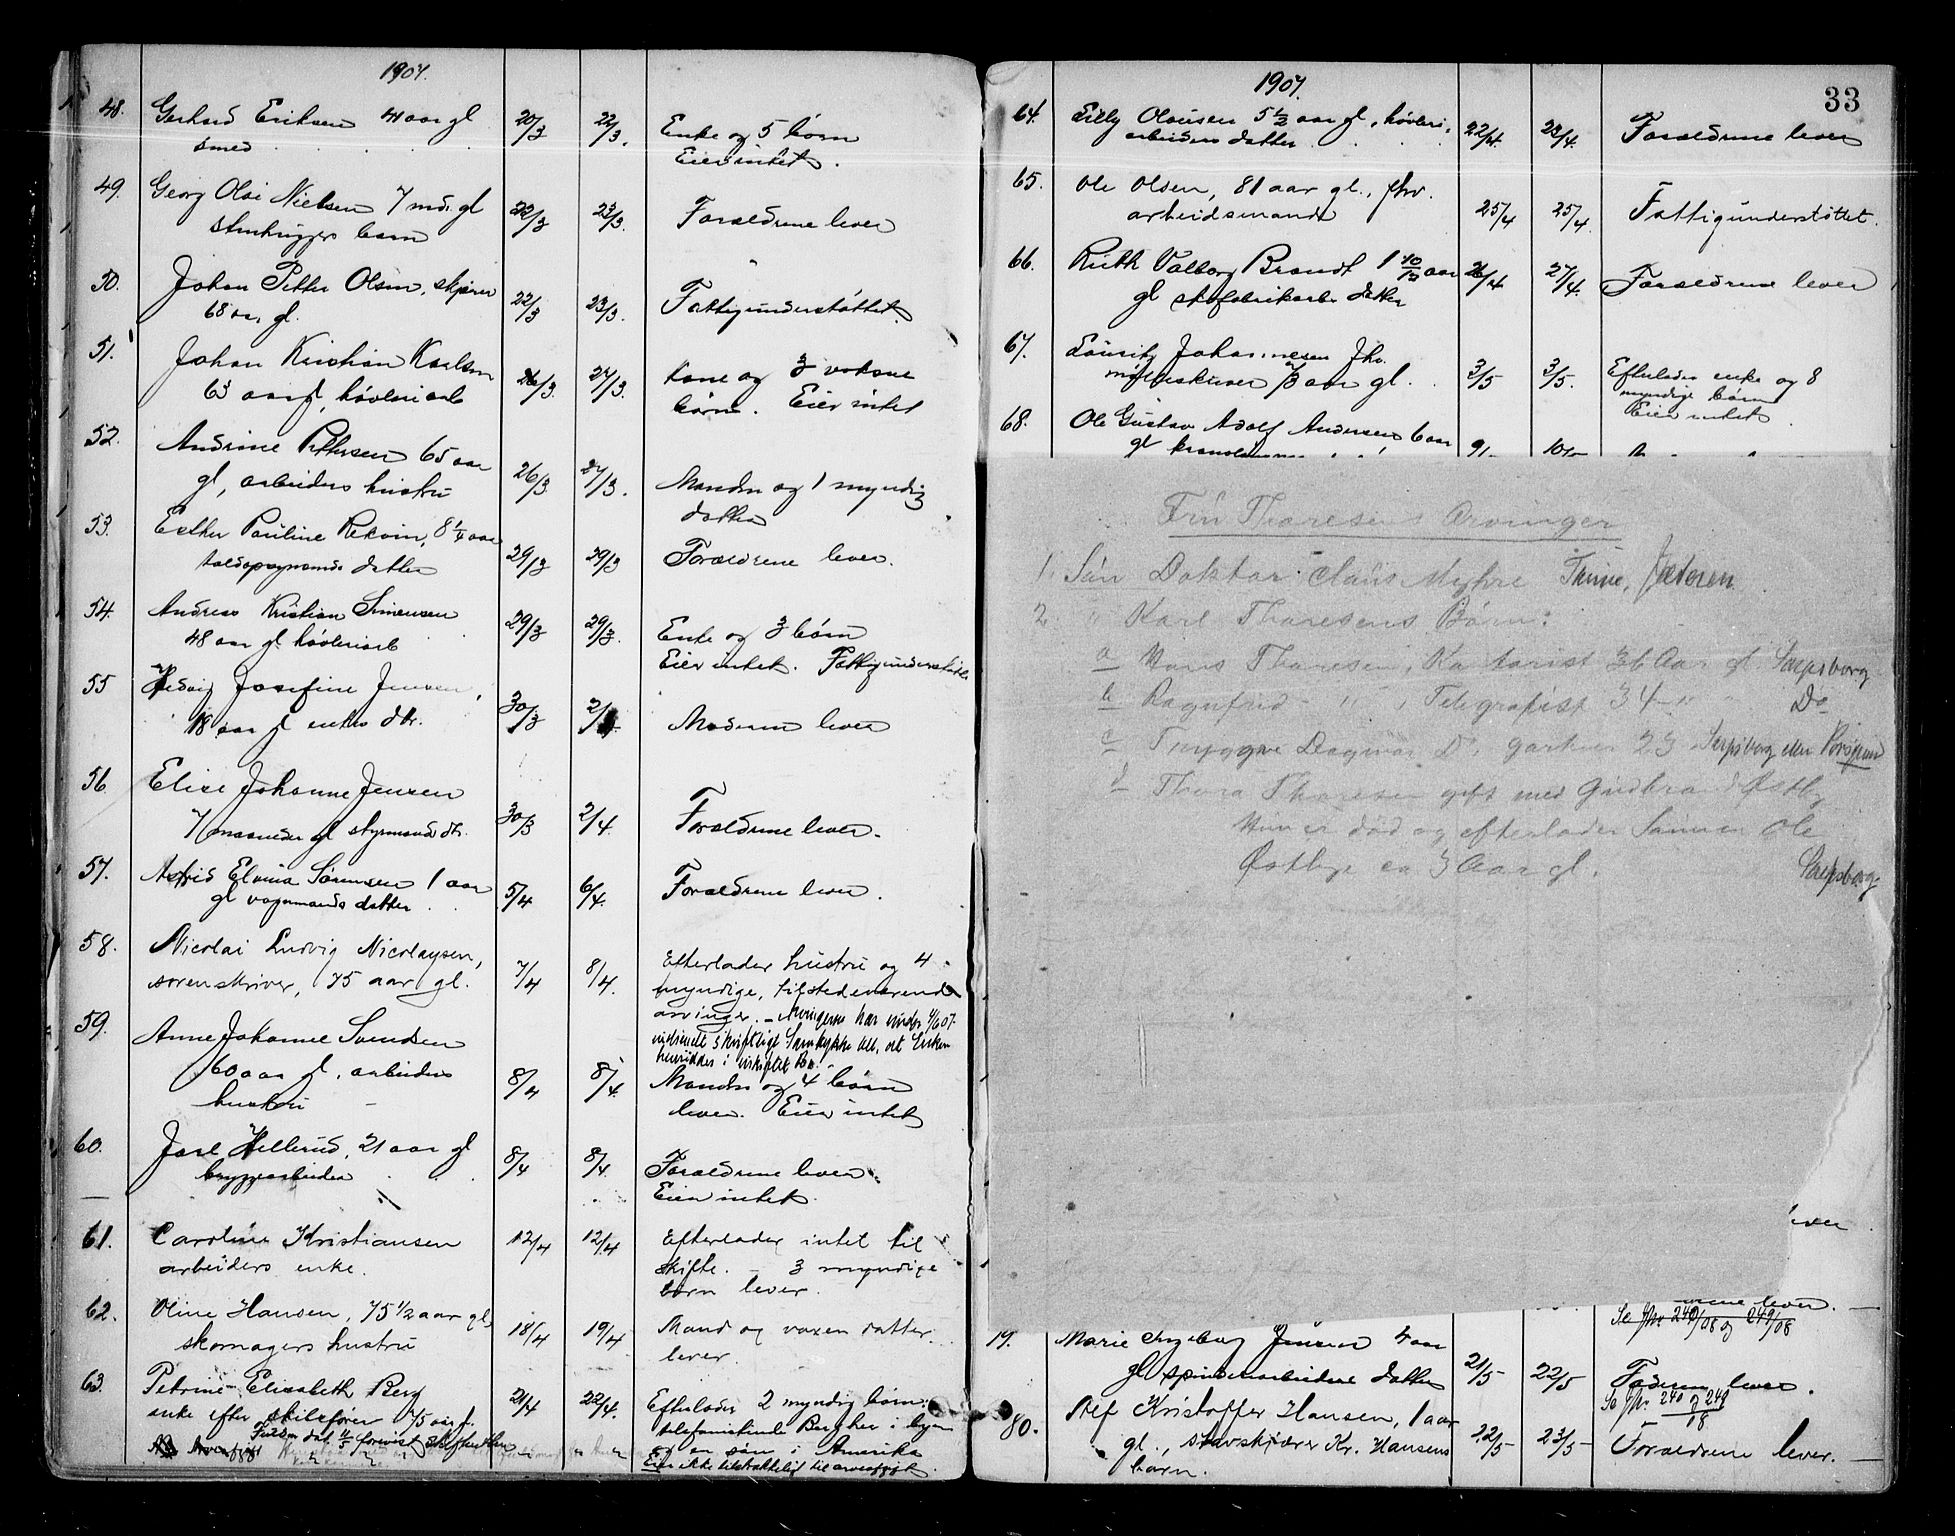 1907.
48. Gerhard Eriksen 41 aar gl 20/3 22/3. Enke og 5 børn
smed Eier intet.
49. Georg Olai Nielsen 7 mdr. gl 22/3 23/3. Forældrene lever
stenhuggers barn
50. Johan Petter Olsen, skjærer 22/3 23/3. Fattigunderstøttet.
68 aar gl.
51. Johan Kristian Karlsen 26/3. 27/3. Kone og 3 voksne
63 aar gl, høvleriarb børn. Eier intet
52. Andrine Pettersen 65 aar 26/3 27/3. Manden og 1 myndig
gl, arbeiders hustru datter
53. Esther Pauline Rekvin, 8 1/4 aar 29/3 29/3 Forældrene lever.
toldopsynsmands datter
54. Andreas Kristian Simensen 29/3 29/3. Enke og 3 børn
48 aar gl høvleriarb Eier intet. Fattigunderstøttet
55 Hedvig Josefine Jensen, 30/3 2/4 Moderen lever
18 aar gl enkes dtr.
56. Elise Johanne Jensen 30/3 2/4. Forældrene lever.
7 maaneder gl styrmands dtr.
57. Astrid Elvina Sørensen 1 aar 5/4 6/4. Forældrene lever.
gl vognmands datter
58. Nicolai Ludvig Nicolaysen, 7/4 8/4. Efterlader hustru og 4
sorenskriver, 75 aar gl. myndige, tilstedeværende
arvinger. - Arvingerne har under 4/6 07.
indsendt skriftligt Samtykke til, at Enken
hensidder i uskiftet Bo.
59. Anne Johanne Svendsen 8/4 8/4. Manden og 4 børn
60 aar gl, arbeiders lever. Eier intet
hustru
60. Jarl Hellerud, 21 aar gl 8/4 8/4. Forældrene lever.
bryggearbeider Eier intet.
61. Caroline Kristiansen 12/4 12/4 Efterlader intet til
arbeiders enke. skifte. - 3 myndige
børn lever.
62. Oline Hansen, 75 1/2 aar gl, 18/4 19/4 Mand og voxen datter
skomagers hustru lever.
63. Petrine Elisabeth Berg 21/4 22/4. Efterlader 2 myndig børn:
enke efter skibsfører 75 aar gl. telefonistinde Berg her i byen
og en søn i Amerika
Eier ikke tilstrækkelig til arveafgift
1907. 33
64. Lilly Olausen 5 1/2 aar gl, høvleri- 22/4. 23/4. Forældrene lever
arbeiders datter
65. Ole Olsen, 81 aar gl., fhv. 25/4 25/4. Fattigunderstøttet.
arbeidsmand
66. Ruth Valborg Brandt 1 10/12 aar 26/4 27/4. Forældrene lever
gl skofabrikarb datter
67. Lauritz Johannesen fhv. 3/5 3/5. Efterlader enke og 8
aar gl. myndige børn
Eier intet
68. Ole Gustav Adolf Andersen 6 aar
gl
Fru Thoresens Arvinger
1. Søn Doktor Claus Myhre Thime, Jæderen
2. " Karl Thoresens Børn:
a Hans Thoresen, Kontorist 36 Aar gl Sarpsborg
b Ragnfrid " , Telegrafist 34 " Do
c Trygve Dagmar D. gartner 23 Sarpsborg eller Porsgrund
d Thora Thoresen gift med Gudbrand Østby
Hun er død og efterlader Sønnen Ole
Østbye ca 3 Aar gl. Sarpsborg
lever
lever.
Se Jnr 240/08 og 249/08
79. Marie Ingeborg Jensen 4 aar 21/5 22/5 Faderen lever.
gl spinderiarbeiders datter Se Jnr. 240 og 249
08
80. Alf Kristoffer Hansen, 1 aar 22/5 23/5 Forældrene lever.
gl., stavskjærer Kr. Hansens
barn.